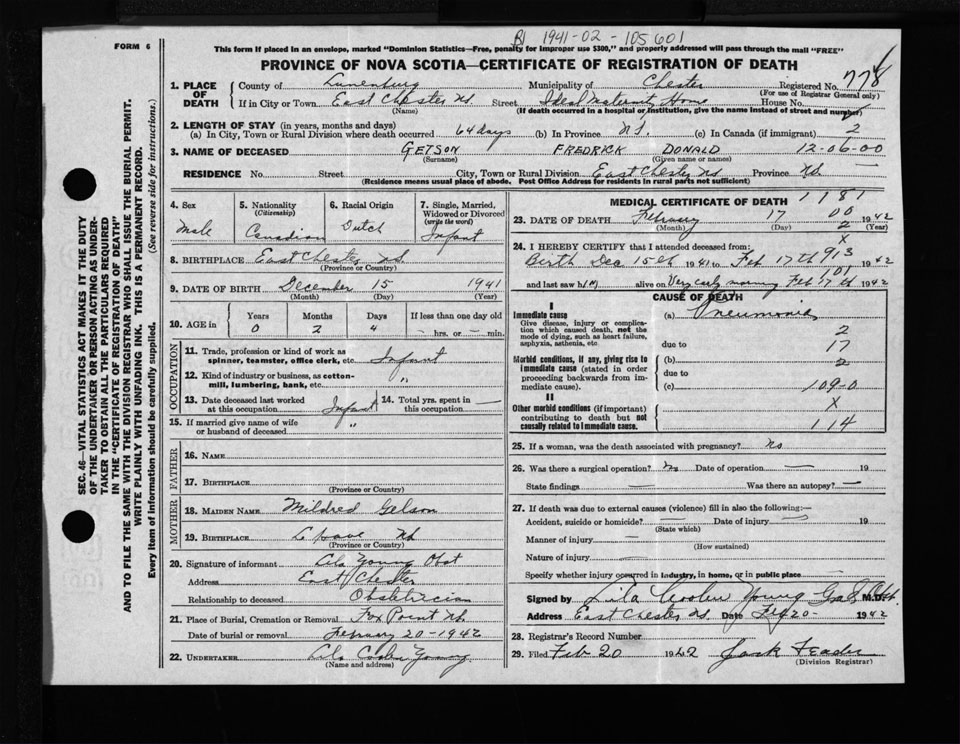 1941-02-105601
FORM 6
This form if placed in an envelope, marked "Dominion Statistics—Free, penalty for improper use $300," and properly addressed will pass through the mail "FREE"
PROVINCE OF NOVA SCOTIA—CERTIFICATE OF REGISTRATION OF DEATH
778
1. PLACE OF DEATH County of Lunenburg Municipality of Chester Registered No.
(For use of Registrar General only)
If in City or Town East Chester NS. Street Ideal Maternity Home House No.
(Name) (If death occurred in a hospital or institution, give the name instead of street and number)
2. LENGTH OF STAY (in years, months and days)
(a) In City, Town or Rural Division where death occurred 64 days (b) In Province NS. (c) In Canada (if immigrant) 2
3. NAME OF DECEASED GETSON FREDRICK DONALD 12-06-00
(Surname) (Given name or names)
RESIDENCE No. Street City, Town or Rural Division East Chester NS Province NS.
(Residence means usual place of abode. Post Office Address for residents in rural parts not sufficient)
4. Sex
Male
5. Nationality
(Citizenship)
Canadian
6. Racial Origin
Dutch
7. Single, Married, Widowed or Divorced
(write the word)
Infant
8. BIRTHPLACE East Chester NS.
(Province or Country)
9. DATE OF BIRTH December 15 1941
(Month) (Day) (Year)
10. AGE in Years Months Days If less than one day old
0 2 4 — hrs. or — min.
OCCUPATION
11. Trade, profession or kind of work as spinner, teamster, office clerk, etc. Infant
12. Kind of industry or business, as cotton-mill, lumbering, bank, etc. "
13. Date deceased last worked at this occupation Infant 14. Total yrs. spent in this occupation —
15. If married give name of wife or husband of deceased "
FATHER
16. NAME
17. BIRTHPLACE
(Province or Country)
MOTHER
18. MAIDEN NAME Mildred Getson
19. BIRTHPLACE NS
(Province or Country)
20. Signature of informant Lila Young Obst
Address East Chester
Relationship to deceased Obstetrician
21. Place of Burial, Cremation or Removal Fox Point NS.
Date of burial or removal February 20-1942
22. UNDERTAKER Lila Young
(Name and address)
MEDICAL CERTIFICATE OF DEATH 1181
23. DATE OF DEATH February 17 00 1942
(Month) (Day) (Year)
2
24. I HEREBY CERTIFY that I attended deceased from:
x
Birth Dec 15th 1941 to Feb 17th 913 1942
101
and last saw h alive on Very early morning Feb 17th 1942
CAUSE OF DEATH
I
Immediate cause (a) Pneumonia
Give disease, injury or complication which caused death, not the mode of dying, such as heart failure, asphyxia, asthenia, etc.
2
due to 17
Morbid conditions, if any, giving rise to immediate cause (stated in order proceeding backwards from immediate cause).
(b) 2
due to
(c) 109-0
II
Other morbid conditions (if important) contributing to death but not causally related to immediate cause.
x
114
25. If a woman, was the death associated with pregnancy? No
26. Was there a surgical operation? No Date of operation — 19
State findings — Was there an autopsy? —
27. If death was due to external causes (violence) fill in also the following:—
Accident, suicide or homicide? — Date of injury — 19
(State which)
Manner of injury —
(How sustained)
Nature of injury —
Specify whether injury occurred in industry, in home, or in public place —
Signed by Lila Young M.D.
Address East Chester NS. Date Feb 20- 1942
28. Registrar's Record Number
29. Filed Feb 20 1942 Jack
(Division Registrar)
SEC. 46—VITAL STATISTICS ACT MAKES IT THE DUTY OF THE UNDERTAKER OR PERSON ACTING AS UNDERTAKER TO OBTAIN ALL THE PARTICULARS REQUIRED IN THE "CERTIFICATE OF REGISTRATION OF DEATH" AND TO FILE THE SAME WITH THE DIVISION REGISTRAR WHO SHALL ISSUE THE BURIAL PERMIT.
WRITE PLAINLY WITH UNFADING INK. THIS IS A PERMANENT RECORD.
Every item of information should be carefully supplied. (See reverse side for instructions.)